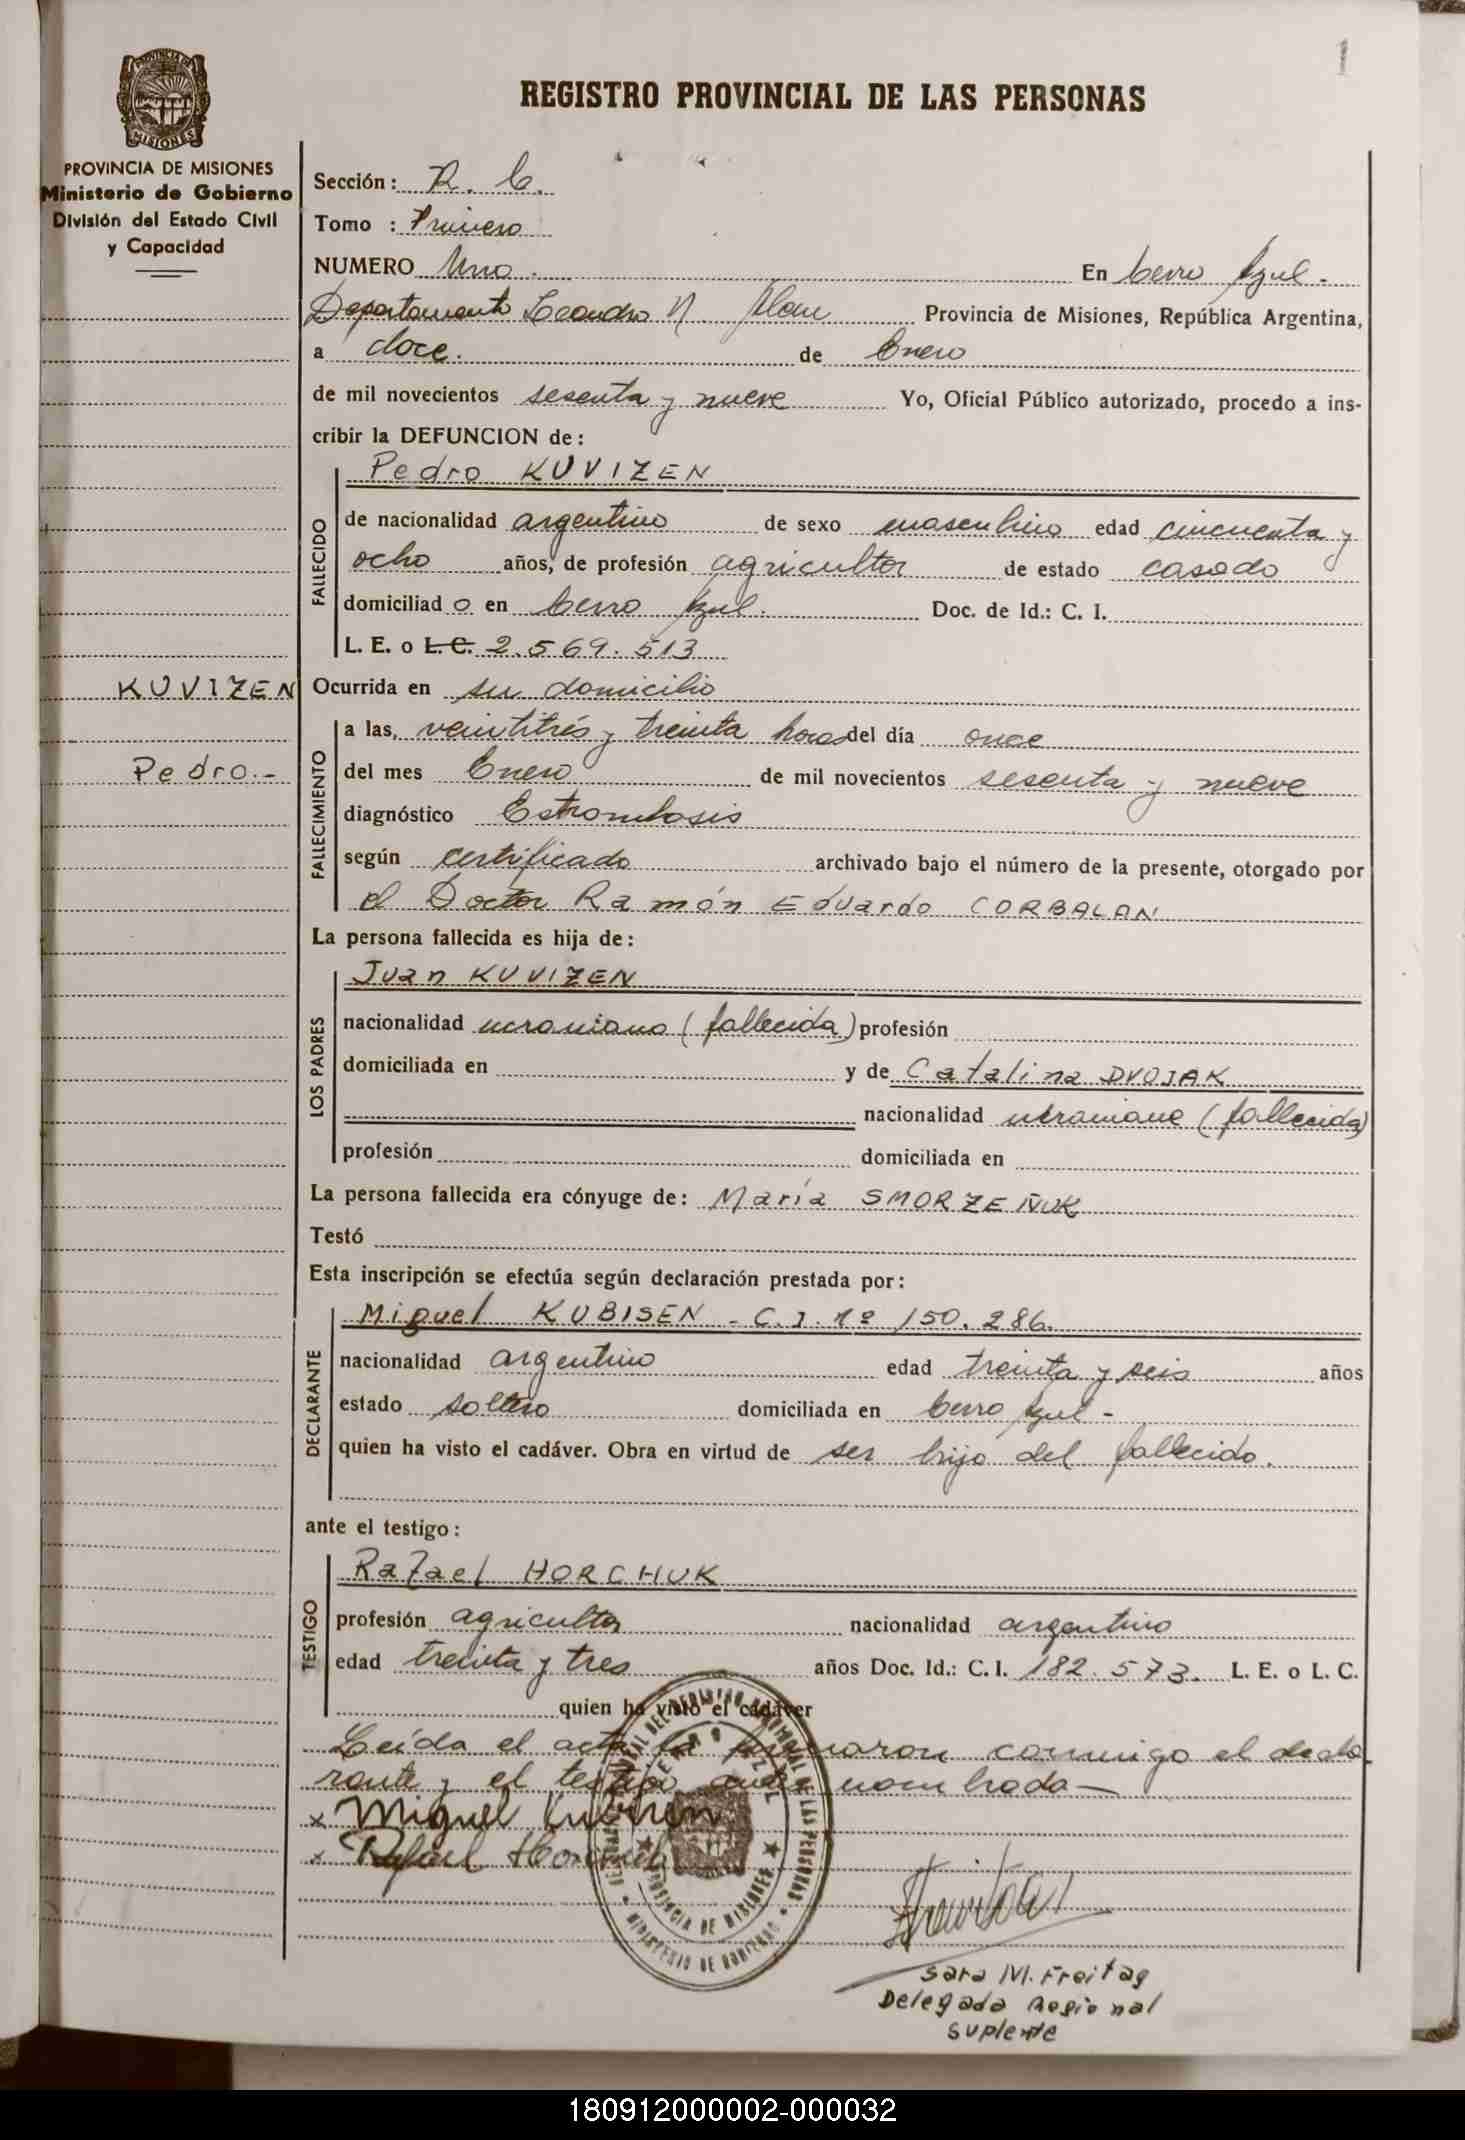 1
REGISTRO PROVINCIAL DE LAS PERSONAS
PROVINCIA DE MISIONES
Ministerio de Gobierno
División del Estado Civil
y Capacidad
Sección: R. C.
Tomo : Primero
NUMERO Uno. En Cerro Azul.-
Departamento Leandro N Alem Provincia de Misiones, República Argentina,
a doce. de Enero
de mil novecientos sesenta y nueve Yo, Oficial Público autorizado, procedo a ins-
cribir la DEFUNCION de:
Pedro KUVIZEN
FALLECIDO
de nacionalidad argentino de sexo masculino edad cincuenta y
ocho años, de profesión agricultor de estado casado
domiciliad o en Cerro Azul. Doc. de Id.: C. I.
L. E. o L. C. 2.569.513
KUVIZEN
Pedro.-
Ocurrida en su domicilio
FALLECIMIENTO
a las, veintitrés y treinta horas del día once
del mes Enero de mil novecientos sesenta y nueve
diagnóstico Estrombosis
según certificado archivado bajo el número de la presente, otorgado por
el Doctor Ramón Eduardo CORBALAN
La persona fallecida es hija de:
Juan KUVIZEN
LOS PADRES
nacionalidad ucraniano (fallecida) profesión
domiciliada en y de Catalina DVOJAK
nacionalidad ucraniana (fallecida)
profesión domiciliada en
La persona fallecida era cónyuge de: María SMORZEÑUK
Testó
Esta inscripción se efectúa según declaración prestada por:
Miguel KUBISEN - C.I. Nº 150.286.
DECLARANTE
nacionalidad argentino edad treinta y seis años
estado soltero domiciliada en Cerro Azul -
quien ha visto el cadáver. Obra en virtud de ser hijo del fallecido.
ante el testigo:
Rafael HORCHUK
TESTIGO
profesión agricultor nacionalidad argentino
edad treinta y tres años Doc. Id.: C. I. 182.573. L. E. o L. C.
quien ha visto el cadáver
Leída el acta la firmaron conmigo el decla-
rante y el testigo antes nombrado—
x Miguel
x Rafael
PROVINCIA DE MISIONES
MINISTERIO DE GOBIERNO
Sara M. Freitag
Delegada Regional
Suplente
180912000002-000032